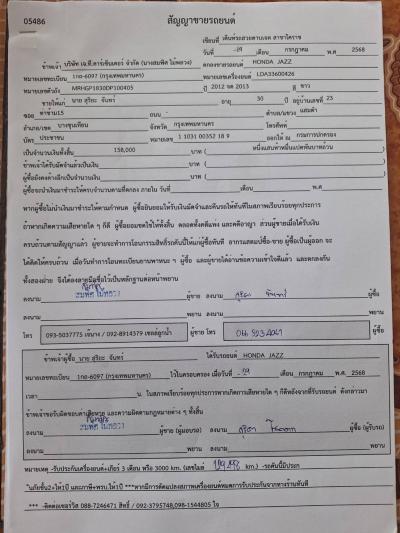 05486
สัญญาขายรถยนต์
เขียนที่ เต็นท์รถสวยตามเจต สาขาโคราช
วันที่ -29 เดือน กรกฎาคม พ.ศ 2568
ข้าพเจ้า บริษัท เจ.ที.คาร์เซ็นเตอร์ จำกัด (นางสมพิศ ไม้พลวง) ตกลงขายรถยนต์ HONDA JAZZ
หมายเลขทะเบียน 1กอ-6097 (กรุงเทพมหานคร) หมายเลขเครื่องยนต์ LDA33600426
หมายเลขตัวถัง MRHGP1830DP100405 ปี 2012 จด 2013 สี ขาว
ขายให้แก่ นาย สุริยะ จันทร์ อายุ 30 ปี อยู่บ้านเลขที่ 23
ซอย ท่าข้าม15 ถนน ตำบล/แขวง แสมดำ
อำเภอ/เขต บางขุนเทียน จังหวัด กรุงเทพมหานคร โทรศัพท์
บัตร ประชาชน หมายเลข 1 1031 00352 18 9 ออกให้ ณ กรมการปกครอง
เป็นจำนวนเงินทั้งสิ้น 158,000 บาท ( หนึ่งแสนห้าหมื่นแปดพันบาทถ้วน )
ข้าพเจ้าได้รับมัดจำแล้วเป็นเงิน บาท ( )
ผู้ซื้อยังคงค้างอีกเป็นจำนวนเงิน บาท ( )
ผู้ซื้อจะนำเงินมาชำระให้ครบจำนวนตามที่ตกลง ภายใน วันที่ เดือน พ.ศ
หากผู้ซื้อไม่นำเงินมาชำระให้ตามกำหนด ผู้ซื้อยินยอมให้ริบเงินมัดจำและคืนรถให้ทันทีในสภาพเรียบร้อยทุกประการ
ถ้าหากเกิดความเสียหายใด ๆ ก็ดี ผู้ซื้อยอมชดใช้ให้ทั้งสิ้น ตลอดทั้งคดีแพ่ง และคดีอาญา ส่วนผู้ขายเมื่อได้รับเงิน
ครบถ้วนตามสัญญาแล้ว ผู้ขายจะทำการโอนกรรมสิทธิ์รถคันนี้ให้แก่ผู้ซื้อทันที อากรแสตมป์ซื้อ-ขาย ผู้ซื้อเป็นผู้ออก จะ
ได้คิดให้ครบถ้วน เมื่อวันทำการโอนทะเบียนยานพาหนะ ฯ ผู้ซื้อ และผู้ขายได้อ่านข้อความเข้าใจดีแล้ว และตกลงกัน
ทั้งสองฝ่าย จึงได้ลงลายมือชื่อไว้เป็นหลักฐานต่อหน้าพยาน
ลงนาม สมพิศ ไม้พลวง ผู้ขาย ลงนาม สุริยะ จันทร์ ผู้ซื้อ
ลงนาม พยาน ลงนาม พยาน
โทร 093-5037775 เจ้นาง / 092-8914379 เซลล์ลูกน้ำ ผู้ขาย โทร ผู้ซื้อ
ข้าพเจ้าผู้ซื้อ นาย สุริยะ จันทร์ ได้รับรถยนต์ HONDA JAZZ
หมายเลขทะเบียน 1กอ-6097 (กรุงเทพมหานคร) ไว้ในครอบครอง เมื่อวันที่ -29 เดือน กรกฎาคม พ.ศ. 2568
เวลา น. ในสภาพเรียบร้อยทุกประการหากเกิดการเสียหายใด ๆ ก็ดีหลังจากที่รับรถยนต์ ดังกล่าวมา
ข้าพเจ้าขอรับผิดชอบค่าเสียหาย และความผิดตามกฎหมายต่าง ๆ ทั้งสิ้น
ลงนาม สมพิศ ไม้พลวง ผู้ขาย (ผู้มอบรถ) ลงนาม ผู้ซื้อ (ผู้รับรถ)
ลงนาม พยาน ลงนาม พยาน
หมายเหตุ -รับประกันเครื่องยนต์+เกียร์ 3 เดือน หรือ 3000 km. (เลขไมล์ km.) -รถคันนี้มีประก
*** -ติดต่อเซอร์วิส 088-7246471 สิทธิ์ / 092-3795748,098-1544805 ใจ